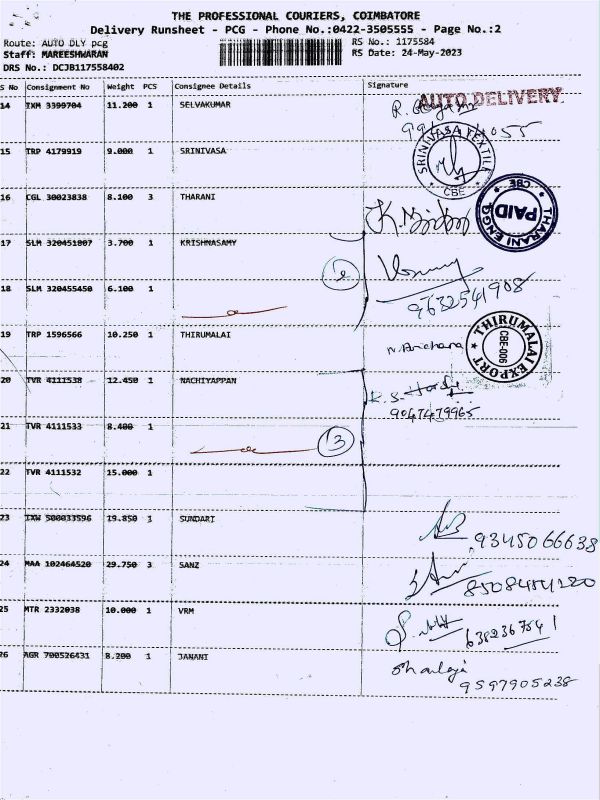 THE PROFESSIONAL COURIERS, COIMBATORE
Delivery Runsheet - PCG - Phone No.:0422-3505555 - Page No.:2
Route: AUTO DLY pcg RS No.: 1175584
Staff: MAREESHWARAN RS Date: 24-May-2023
DRS No.: DCJB117558402
S No Consignment No Weight PCS Consignee Details Signature
AUTO DELIVERY
14 IXM 3399704 11.200 1 SELVAKUMAR
15 TRP 4179919 9.000 1 SRINIVASA
SRINIVASA TEXTILE
CBE
16 CGL 30023838 8.100 3 THARANI
THARANI ENGG
PAID
CBE
17 SLM 320451807 3.700 1 KRISHNASAMY
2
18 SLM 320455450 6.100 1
9632541908
19 TRP 1596566 10.250 1 THIRUMALAI
THIRUMALAI EXPORT
CBE-006
20 TVR 4111538 12.450 1 NACHIYAPPAN
9047479965
21 TVR 4111533 8.400 1
3
22 TVR 4111532 15.000 1
23 IXW 500033596 19.850 1 SUNDARI
9345066638
24 MAA 102464520 29.750 3 SANZ
25 MTR 2332038 10.000 1 VRM
26 AGR 700526431 8.200 1 JANANI
9597905238